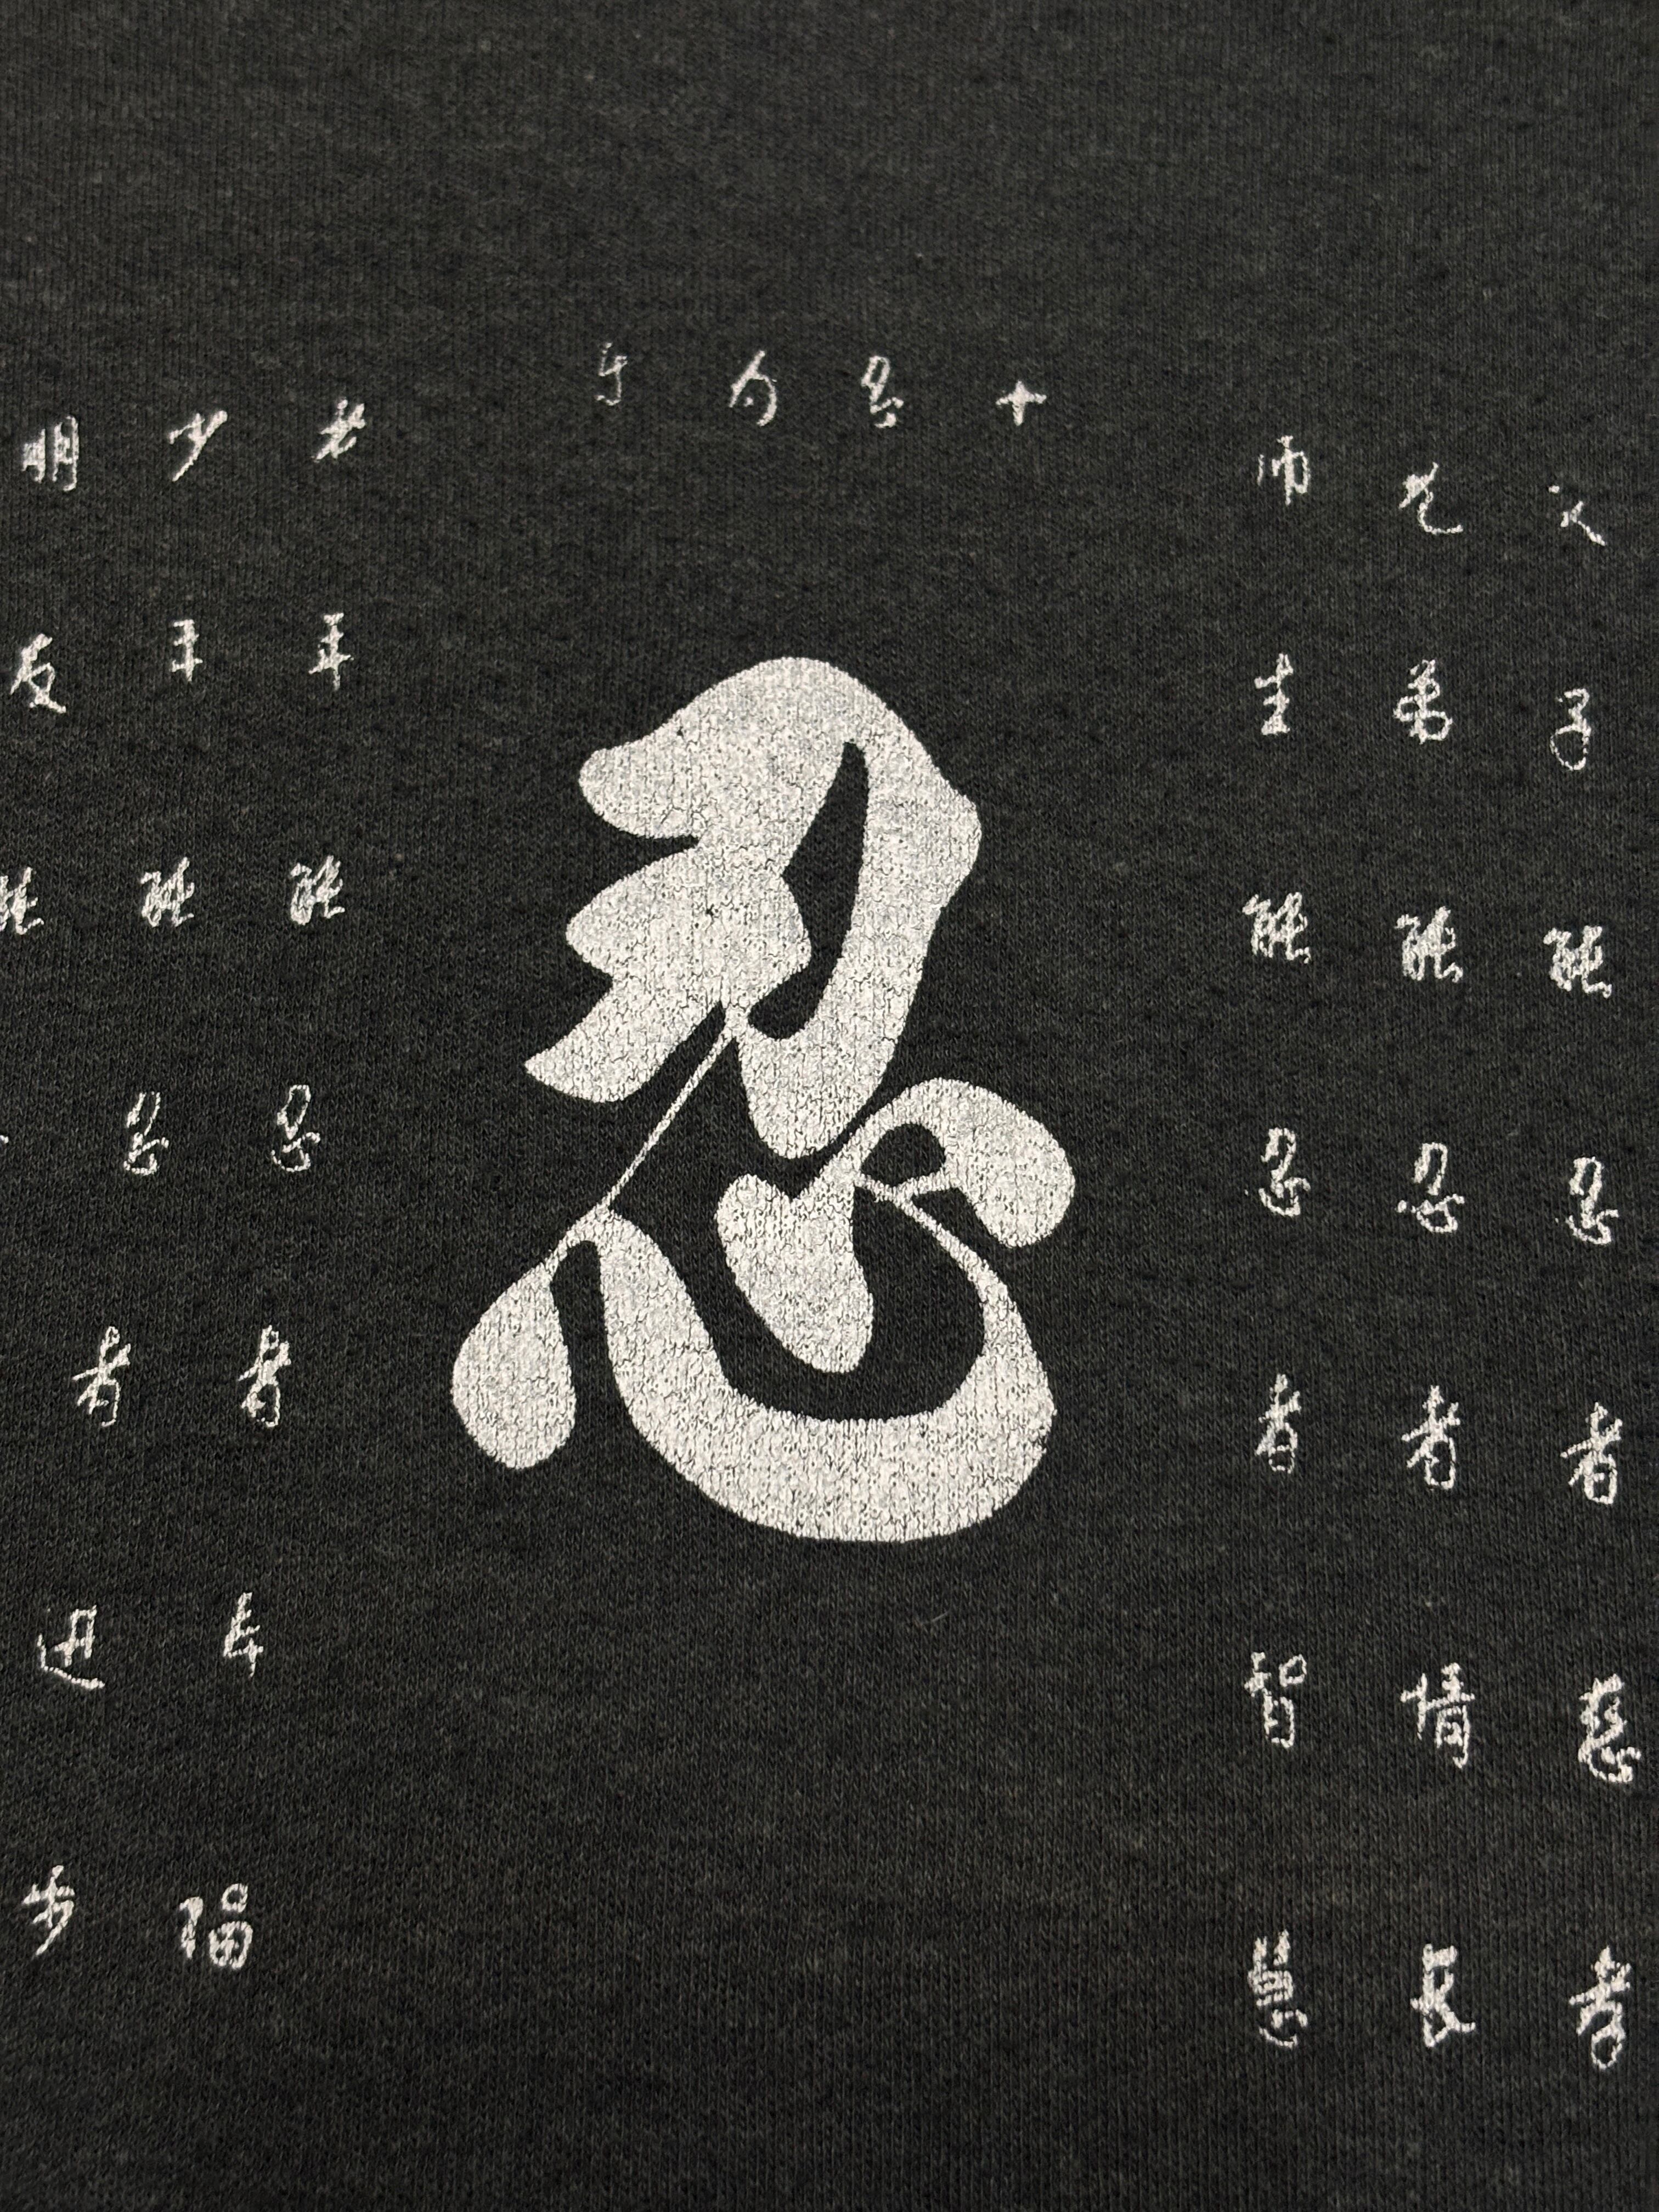 十忍为
父子能忍者慈孝
兄弟能忍者情长
师生能忍者智慧
忍
老年能忍者福
少年能忍者进步
朋友能